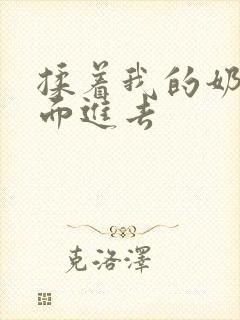 揉着我的奶
而進去
克洛澤